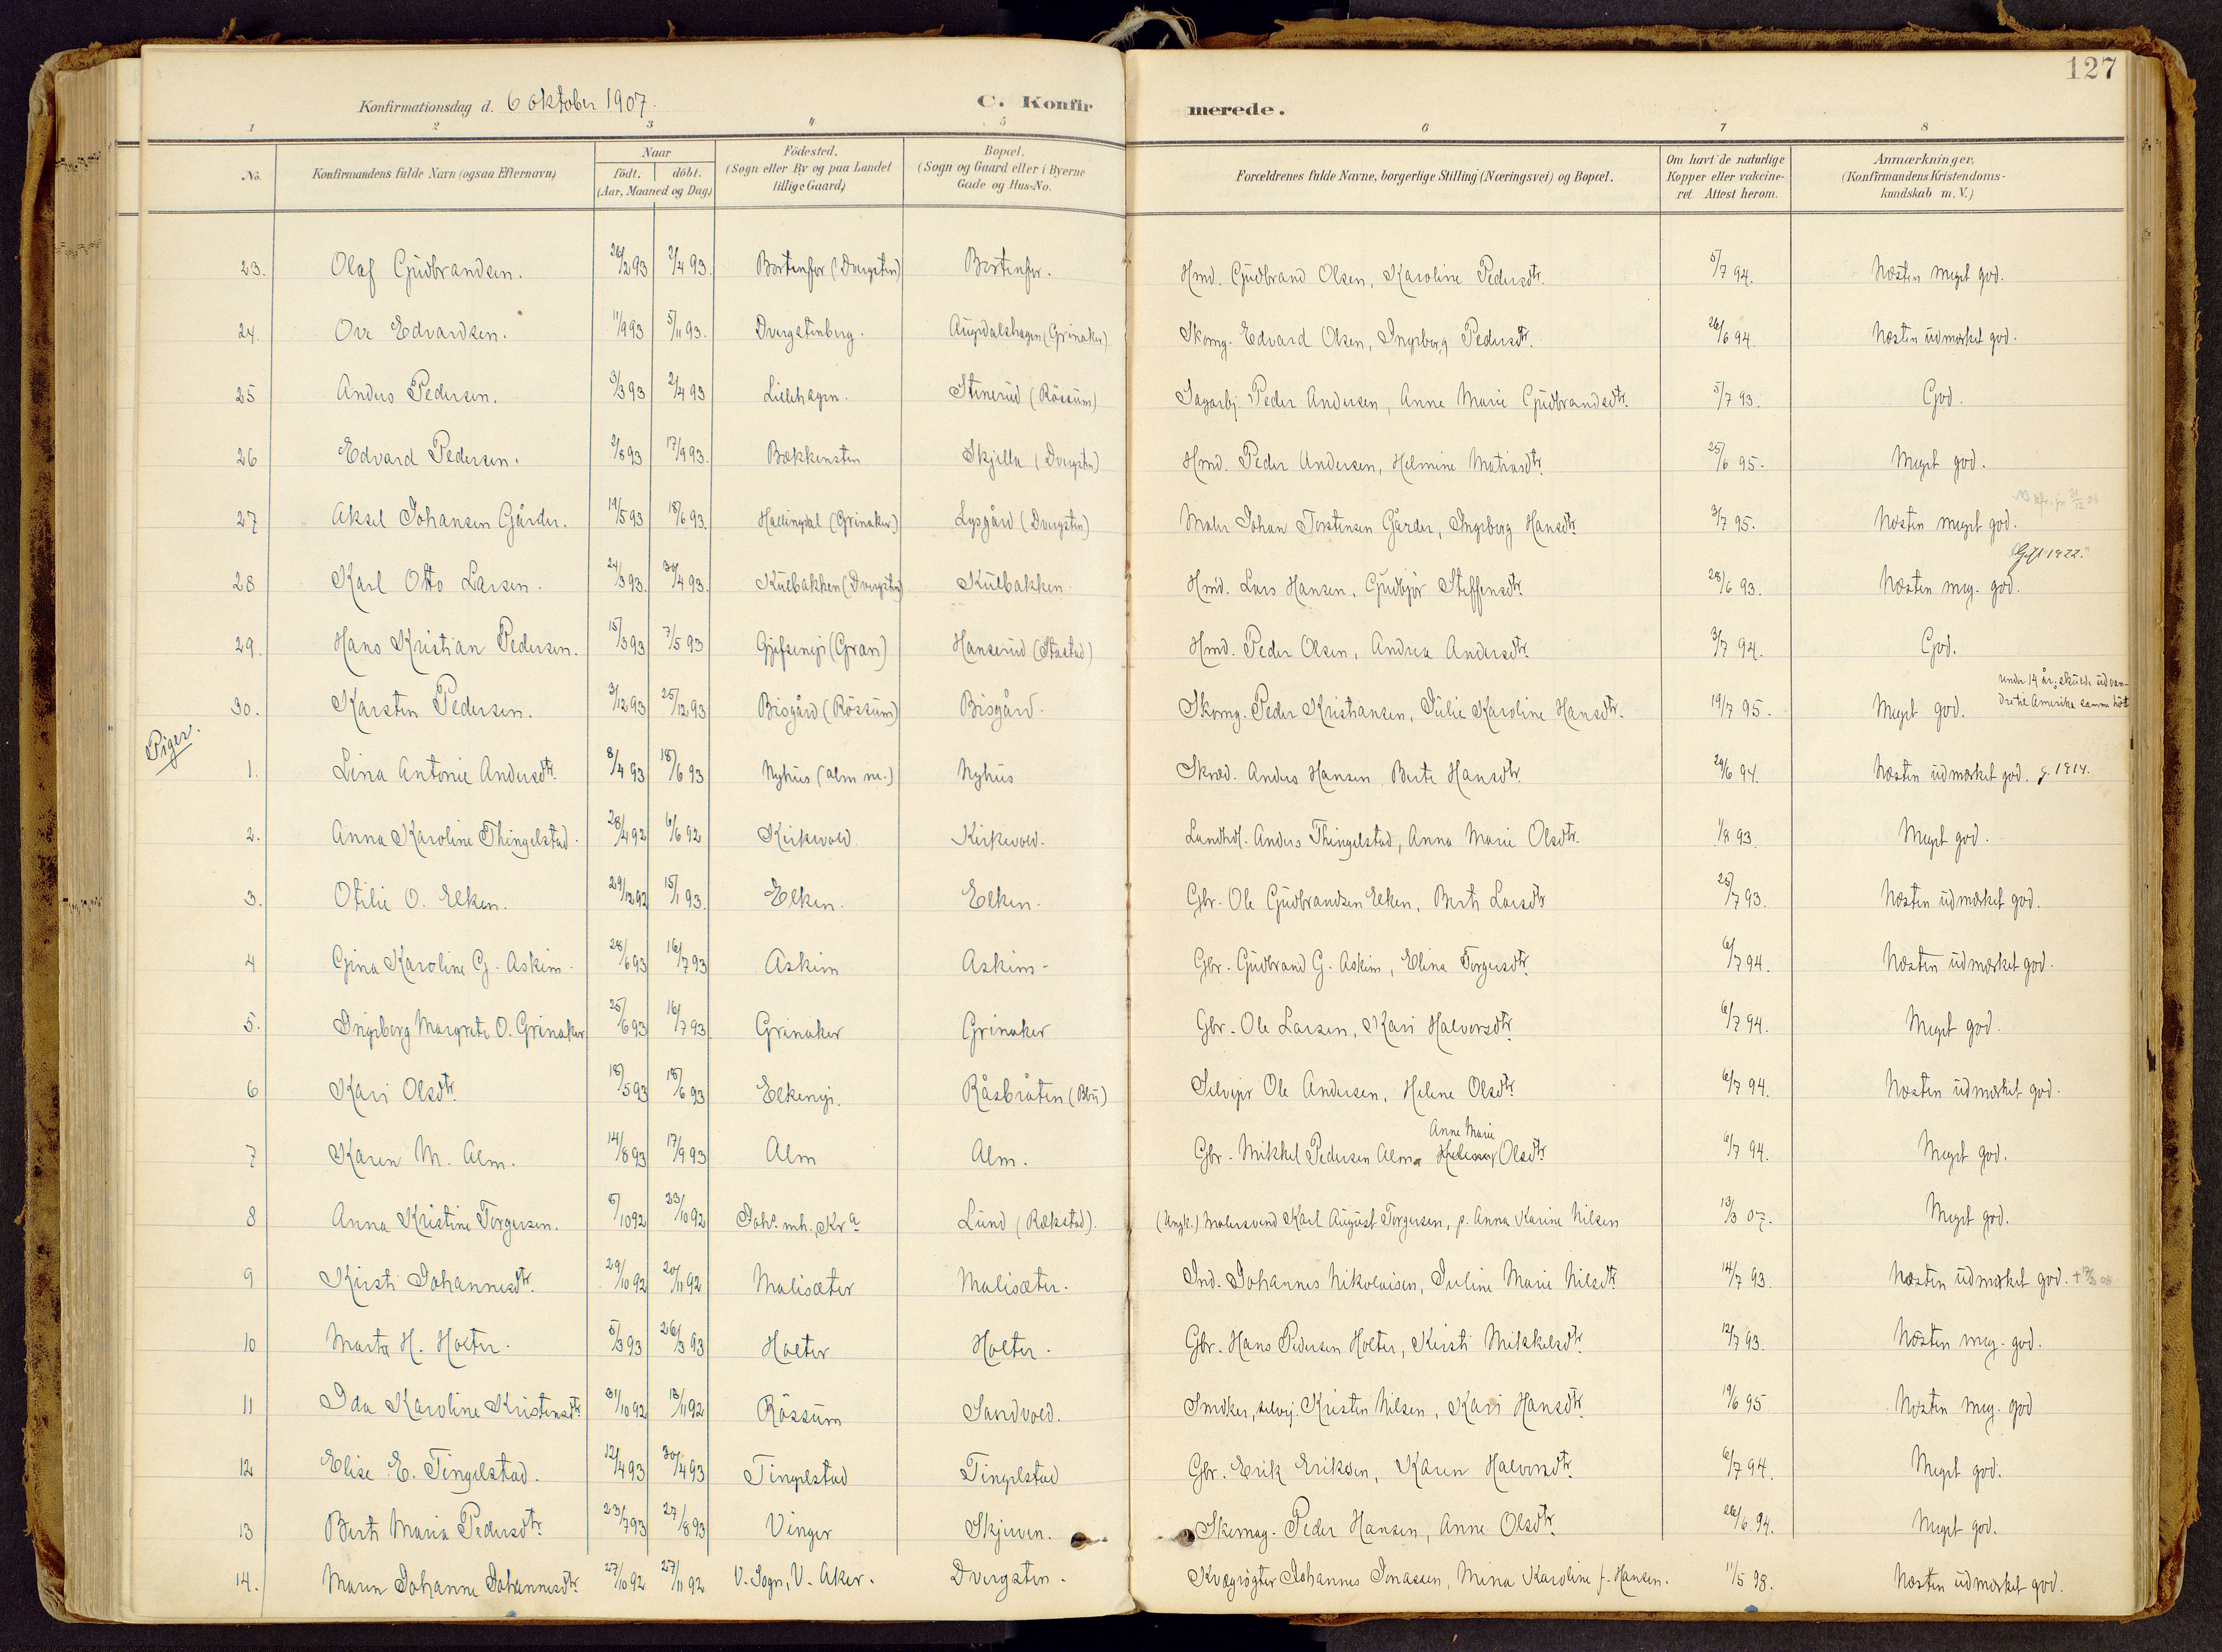 127
Konfirmationsdag d. 6 oktober 1907.
C. Konfirmerede.
1 2 3 4 5 6 7 8
No. Konfirmandens fulde Navn (ogsaa Efternavn) Naar födt. döbt. (Aar, Maaned og Dag) Födested. (Sogn eller By og paa Landet tillige Gaard) Bopæl. (Sogn og Gaard eller i Byerne Gade og Hus-No. Forældrenes fulde Navne, borgerlige Stilling (Næringsvei) og Bopæl. Om havt de naturlige Kopper eller vakcineret. Attest herom. Anmærkninger. (Konfirmandens Kristendomskundskab m. V.)
23. Olaf Gudbrandsen. 26/2 93 2/4 93. Bortenfor (Dvergsten) Bortenfor. Hmd. Gudbrand Olsen, Karoline Pedersdtr. 5/7 94. Næsten meget god.
24. Ove Edvardsen. 11/9 93 5/11 93. Dvergstenberg. Augedalshagen (Grinaker) Skomg. Edvard Olsen, Ingeborg Pedersdtr. 26/6 94. Næsten udmærket god.
25 Anders Pedersen. 3/3 93 2/4 93 Lillehagen. Stenerud (Røssum) Sagarbj. Peder Andersen, Anne Marie Gudbrandsdtr. 5/7 93. God.
26 Edvard Pedersen. 2/8 93 17/9 93. Bækkensten Skjella (Dvergsten) Hmd. Peder Andersen, Helmine Matiasdtr. 25/6 95. Meget god.
27 Aksel Johansen Gårder. 19/5 93 18/6 93. Hallingdal (Grinaker) Lysgård (Dvergsten) Maler Johan Torstensen Gårder, Ingeborg Hansdtr. 3/7 95. Næsten meget god.
28 Karl Otto Larsen. 24/3 93. 30/4 93. Kulbakken (Dvergsten) Kulbakken. Hmd. Lars Hansen, Gudbjør Steffensdtr. 28/6 93. Næsten meg. god. Gift 1922.
29. Hans Kristian Pedersen. 15/3 93 7/5 93 Gjefsenejе (Gran) Hanserud (Stastad) Hmd. Peder Olsen, Andrea Andersdtr. 3/7 94. God.
30. Karsten Pedersen. 3/12 93 25/12 93 Bisgård (Røssum) Bisgård. Skomg. Peder Kristiansen, Julie Karoline Hansdtr. 19/7 95. Meget god. under 14 år; skulde udvandre til Amerika samme høst
Piger.
1. Lina Antonie Andersdtr. 8/4 93 18/6 93 Nyhus (Alm ne.) Nyhus Skræd. Anders Hansen, Berte Hansdtr. 29/6 94. Næsten udmærket god. g. 1914.
2. Anna Karoline Thingelstad. 28/4 92 6/6 92 Kirkevold. Kirkevold. Landhdl. Anders Thingelstad, Anna Marie Olsdtr. 1/8 93. Meget god.
3. Otilie O. Elken. 29/12 92 15/1 93. Elken. Elken. Gbr. Ole Gudbrandsen Elken, Berth Larsdtr. 25/7 93. Næsten udmærket god.
4 Gina Karoline G. Askim. 28/6 93 16/7 93 Askim Askim. Gbr. Gudbrand G. Askim, Elina Torgersdtr. 6/7 94. Næsten udmærket god.
5. Ingeborg Margrete O. Grinaker 25/6 93 16/7 93. Grinaker Grinaker Gbr. Ole Larsen, Kari Halvorsdtr. 6/7 94. Meget god.
6 Kari Olsdtr. 18/5 93 18/6 93 Elkeneje. Råsbråten (Blii) Selvejer Ole Andersen, Helene Olsdtr. 6/7 94. Næsten udmærket god.
7 Karen M. Alm. 14/8 93 17/9 93 Alm Alm. Gbr. Mikkel Pedersen Alm, Anne Marie Olsdtr. 6/7 94. Meget god.
8 Anna Kristine Torgersen. 6/10 92 23/10 92 Joh.s mh., Kr.a Lund (Rækstad). (Ungk.) Malersvend Karl August Torgersen, p. Anna Karine Nilsen 13/3 07. Meget god.
9 Kirsti Johannesdtr. 29/10 92 20/11 92 Malisæter Malisæter. Ind. Johannes Nikolaisen, Juline Marie Nilsdtr. 14/7 93. Næsten udmærket god.
10 Marta H. Holter. 5/3 93 26/3 93 Holter Holter. Gbr. Hans Pedersen Holter, Kirsti Mikkelsdtr. 12/7 93. Næsten meg. god.
11 Ida Karoline Kristensdtr. 31/10 92 13/11 92 Røssum Sandvold. Snedker, selvej. Kristen Nilsen, Kari Hansdtr. 19/6 95 Næsten meg. god
12 Elise E. Tingelstad. 12/4 93 30/4 93 Tingelstad Tingelstad Gbr. Erik Eriksen, Karen Halvorsdtr. 6/7 94. Meget god.
13 Berth Maria Pedersdtr. 23/7 93 27/8 93 Vinger Skjerven. Skomag. Peder Hansen, Anne Olsdtr. 26/6 94. Meget god.
14. Maren Johanne Johannesdtr. 27/10 92 27/11 92 V. Sogn, V. Aker. Dvergsten. Kvægrøgter Johannes Jonassen, Mina Karoline f. Hansen. 11/5 98. Næsten udmærket god.